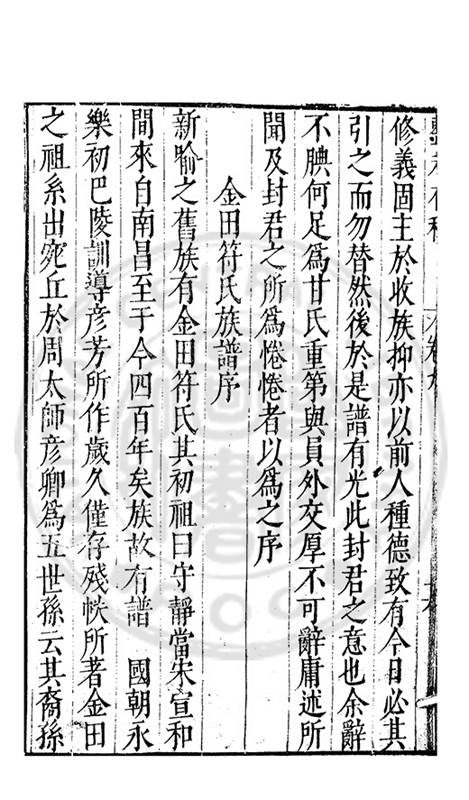 修義固主於收族抑亦以前人種德致有今日必其
引之而勿替然後於是譜有光此封君之意也余辭
不腆何足為甘氏重第與員外交厚不可辭庸述所
聞及封君之所為惓惓者以為之序
金田符氏族譜序
新喻之舊族有金田符氏其初祖曰守靜當宋宣和
間來自南昌至于今四百年矣族故有譜　國朝永
樂初巴陵訓導彥芳所作歲久僅存殘帙所著金田
之祖系出宛丘於周太師彥卿為五世孫云其裔孫